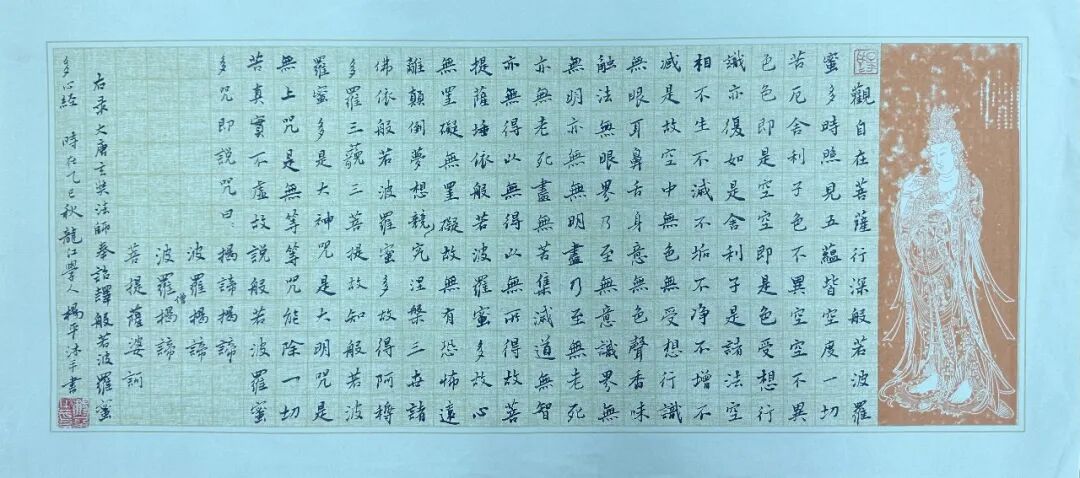 觀自在菩薩行深般若波羅
蜜多時照見五蘊皆空度一切
苦厄舍利子色不異空空不異
色色即是空空即是色受想行
識亦復如是舍利子是諸法空
相不生不滅不垢不净不增不
减是故空中無色無受想行識
無眼耳鼻舌身意無色聲香味
觸法無眼界乃至無意識界無
無明亦無無明盡乃至無老死
亦無老死盡無苦集滅道無智
亦無得以無得以無所得故菩
提薩埵依般若波羅蜜多故心
無罣礙無罣礙故無有恐怖遠
離顛倒夢想競究涅槃三世諸
佛依般若波羅蜜多故得阿耨
多羅三藐三菩提故知般若波
羅蜜多是大神咒是大明咒是
無上咒是無等等咒能除一切
苦真實不虛故說般若波羅蜜
多咒即說咒曰：揭諦揭諦
波羅揭諦
波羅僧揭諦
菩提薩婆訶
右录大唐玄奘法師奉詔譯般若波羅蜜
多心經 時在乙巳秋 龍江學人楊平沐手書